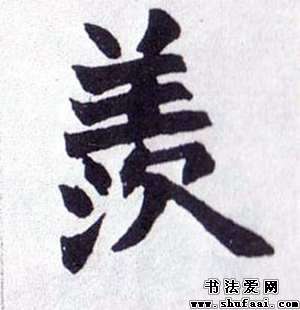 羡
书法爱网
www.shufaai.com